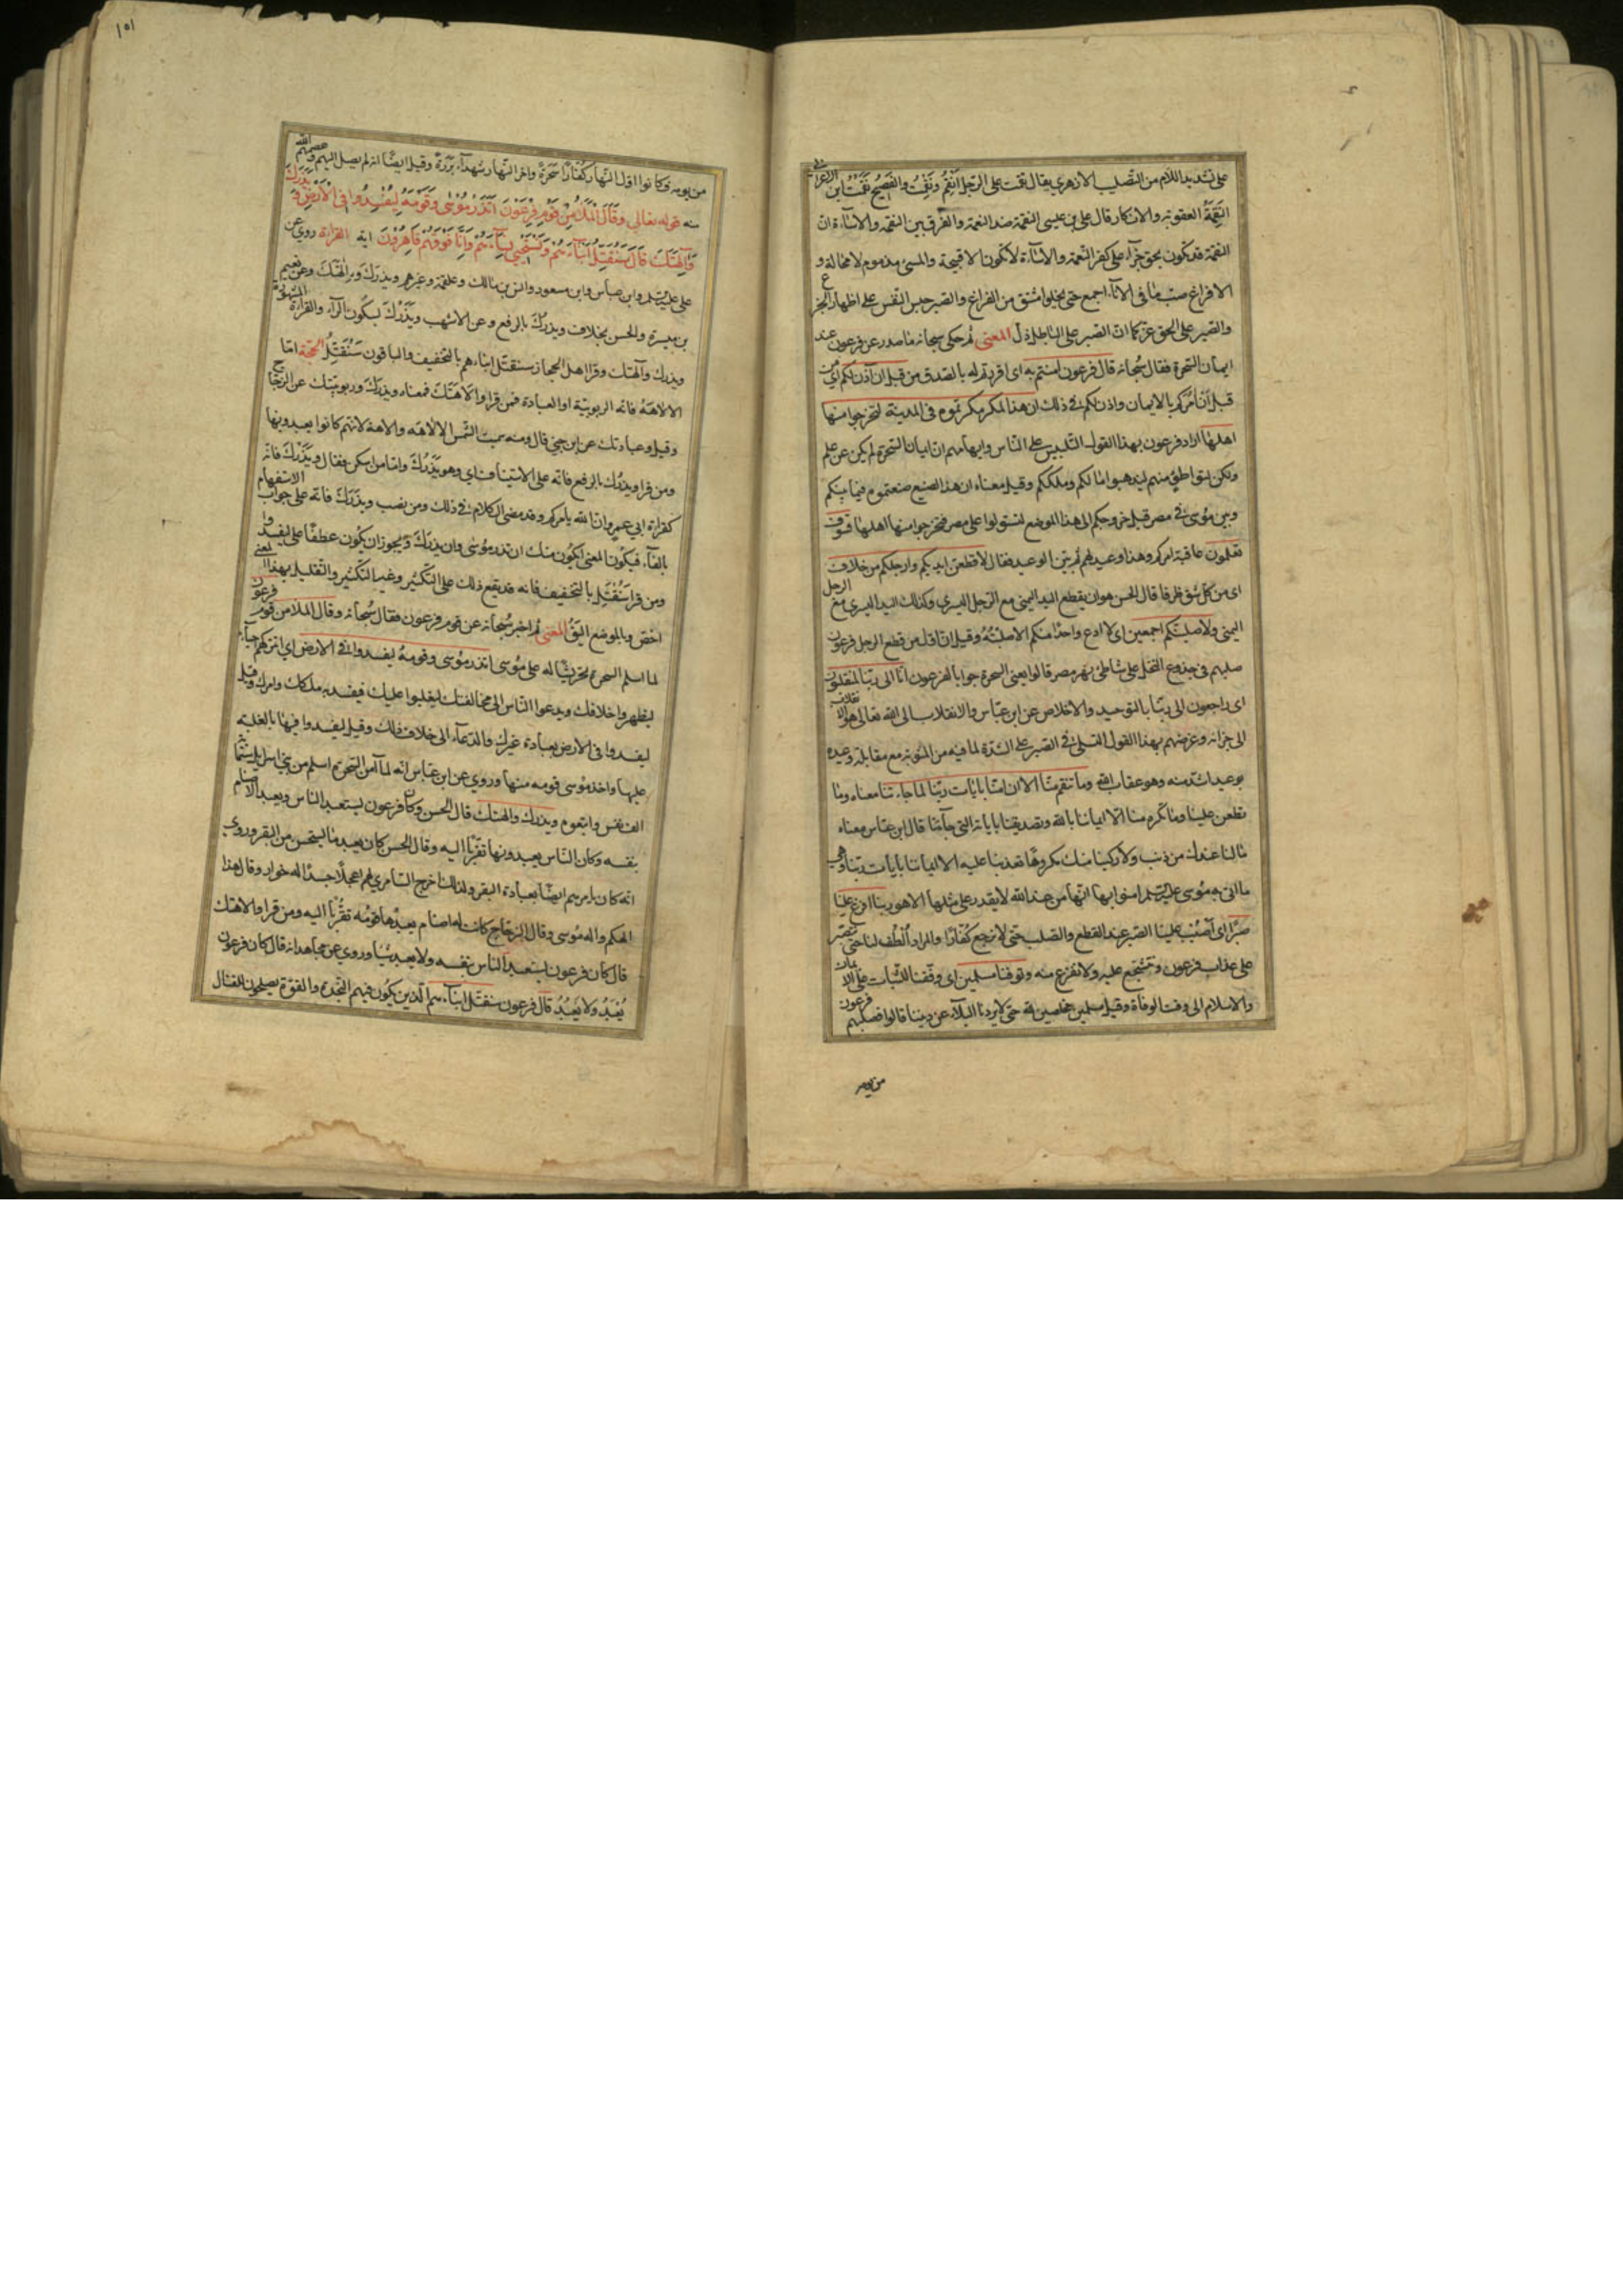 على تشديد اللام من التصليب الازهري يقال نقمت على الرجل انقم ونقمت والفصيح نقمت ابن الاعرابي
النقمة العقوبة والانكار قال على بن عيسى النقمة ضد النعمة والفرق بين النقمة والاساءة ان
النقمة قد تكون بحق جزاء على كفر النعمة والاساءة لا تكون الا قبيحة والمسئ مذموم لا محالة و
الافراغ صب ما في الاناء اجمع حتى يخلوا مشتق من الفراغ والصبر حبس النفس على اظهار الجزع
والصبر على الحق عز كما ان الصبر على الباطل ذل المعنى ثم حكى سبحانه ما صدر عن فرعون عند
ايمان السحرة فقال سبحانه قال فرعون امنتم به اى اقررتم له بالصدق من قبل ان اذن لكم اى من
قبل ان امركم بالايمان واذن لكم في ذلك ان هذا لمكر مكرتموه فى المدينة لتخرجوا منها
اهلها اراد فرعون بهذا القول التلبيس على الناس وايهامهم ان ايمان السحرة لم يكن عن علم
ولكن لتواطئ منهم ليذهبوا امالكم وملككم وقيل معناه ان هذا الصنيع صنعتموه فيما بينكم
وبين موسى في مصر قبل خروجكم الى هذا الموضع لتستولوا على مصر فتخرجوا منها اهلها فسوف
تعلمون عاقبة امركم وهذا وعيد لهم ثم بين الوعيد فقال لاقطعن ايديكم وارجلكم من خلاف
اى من كل شق طرفا قال الحسن هو ان يقطع اليد اليمنى مع الرجل اليسرى وكذلك اليد اليسرى مع الرجل
اليمنى ولاصلبنكم اجمعين اى لا ادع واحدا منكم الا صلبته وقيل ان اول من قطع الرجل فرعون
صلبهم في جذوع النخل على شاطئ نهر مصر قالوا يعنى السحرة جوابا لفرعون انا الى ربنا لمنقلبون
اى راجعون الى ربنا بالتوحيد والاخلاص عن ابن عباس والانقلاب الى الله تعالى هو الانقلاب
الى جزائه وغرضهم بهذا القول التسلى في الصبر على الشدة لما فيه من المثوبة مع مقابلة وعيده
بوعيد اشد منه وهو عقاب الله وما تنقم منا الا ان امنا بايات ربنا لما جاءتنا معناه وما
تطعن علينا وما تكره منا الا ايماننا بالله وتصديقنا باياته التى جاءتنا قال ابن عباس معناه
مالنا عندك من ذنب ولا ركبنا منك مكروها تعذبنا عليه الا ايماننا بايات ربنا وهى
ما اتى به موسى امنوا بها انها من عند الله لا يقدر على مثلها الا هو ربنا افرغ علينا
صبرا اى اصبب علينا الصبر عند القطع والصلب حتى لا نرجع كفارا والمراد الطف لنا حتى نتصبر
على عذاب فرعون ونتشجع عليه ولا نفزع منه وتوفنا مسلمين اى وفقنا للثبات على الايمان
والاسلام الى وقت الوفاة وقيل مسلمين مخلصين لله حتى لا يردنا البلاء عن ديننا قالوا فصلبهم فرعون
من يومه
١٥١
من يومه وكانوا اول النهار كفارا سحرة واخر النهار شهداء بررة وقيل ايضا انه لم يصل اليهم وعصمهم الله
منه قوله تعالى وقال الملا من قوم فرعون اتذر موسى وقومه ليفسدوا فى الارض ويذرك
والهتك قال سنقتل ابناءهم ونستحيى نساءهم وانا فوقهم قاهرون اية القراءة روى عن
على وابن عباس وابن مسعود وانس بن مالك وعلقمة وغيرهم ويذرك والاهتك وعن نعيم
بن ميسرة والحسن بخلاف ويذرك بالرفع وعن الاشهب ويذرك بسكون الراء والقراءة المشهورة
ويذرك والهتك وقرا اهل الحجاز سنقتل ابناءهم بالتخفيف والباقون سنقتل الحجة اما
الالاهة فانه الربوبية او العبادة فمن قرا والاهتك فمعناه ويذرك وربوبيتك عن الزجاج
وقيل وعبادتك عن ابن جنى قال ومنه سميت الشمس الالاهة والاهة لانهم كانوا يعبدونها
ومن قرا ويذرك بالرفع فانه على الاستيناف اى وهو يذرك واما من اسكن فقال ويذرك فانه
كقراءة ابي عمرو ان الله يامركم وقد مضى الكلام في ذلك ومن نصب ويذرك فانه على جواب الاستفهام
بالفاء فيكون المعنى ايكون منك ان تذر موسى وان يذرك ويجوز ان يكون عطفا على ليفسدوا
ومن قرا سنقتل بالتخفيف فانه قد يقع ذلك على التكثير وغير التكثير والتثقيل بهذا المعنى
اخص وبالموضع اليق المعنى ثم اخبر سبحانه عن قوم فرعون فقال سبحانه وقال الملا من قوم فرعون
لما اسلم السحرة تحريضا له على موسى اتذر موسى وقومه ليفسدوا في الارض اى اتتركهم احياء
ليظهروا خلافك ويدعوا الناس الى مخالفتك ليغلبوا عليك فيفسد به ملكك وامرك وقيل
ليفسدوا فى الارض بعبادة غيرك والدعاء الى خلاف ذلك وقيل ليفسدوا فيها بالغلبة
عليها واخذ موسى قومه منها وروى عن ابن عباس انه لما آمن السحرة اسلم من بنى اسرائيل ستماة
الف نفس واتبعوه ويذرك والهتك قال الحسن وكان فرعون يستعبد الناس ويعبد الاصنام
بنفسه وكان الناس يعبدونها تقربا اليه وقال الحسن كان يعبد ما يستحسن من البقر وروى
انه كان يامرهم ايضا بعبادة البقر ولذلك اخرج السامرى لهم عجلا جسدا له خوار وقال هذا
الهكم واله موسى وقال الزجاج كانت له اصنام يعبدها قومه تقربا اليه ومن قرا والاهتك
قال كان فرعون يستعبد الناس بنفسه ولا يعبد شيئا وروى عن مجاهد انه قال كان فرعون
يعبد ولا يعبد قال فرعون سنقتل ابناءهم الذين يكون فيهم النجدة والقوة يصلحون للقتال